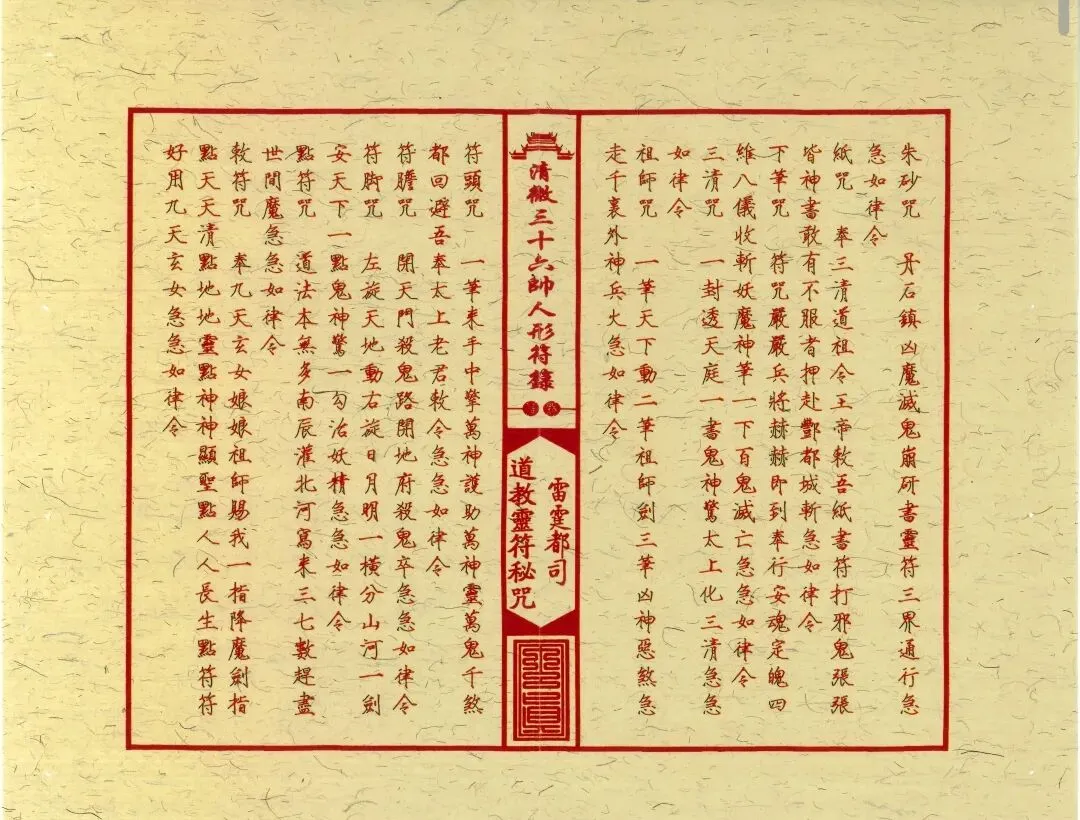 朱砂咒　丹石鎮凶魔滅鬼崩研書靈符三界通行急
急如律令
紙咒　奉三清道祖令王帝敕吾紙書符打邪鬼張張
皆神書敢有不服者押赴酆都城斬急如律令
下筆咒　符咒嚴嚴兵將赫赫即到奉行安魂定魄四
維八儀收斬妖魔神筆一下百鬼滅亡急急如律令
三清咒　一封透天庭一書鬼神驚太上化三清急急
如律令
祖師咒　一筆天下動二筆祖師劍三筆凶神惡煞急
走千裏外神兵火急如律令
清微三十六帥人形符錄
雷霆都司
道教靈符秘咒
符頭咒　一筆來手中擎萬神護助萬神靈萬鬼千煞
都回避吾奉太上老君敕令急急如律令
符膽咒　開天門殺鬼路開地府殺鬼卒急急如律令
符脚咒　左旋天地動右旋日月明一橫分山河一劍
安天下一點鬼神驚一勾治妖精急急如律令
點符咒　道法本無多南辰灌北河寫來三七數趕盡
世間魔急急如律令
敕符咒　奉九天玄女娘娘祖師賜我一指降魔劍指
點天天清點地地靈點神神顯聖點人人長生點符符
好用九天玄女急急如律令